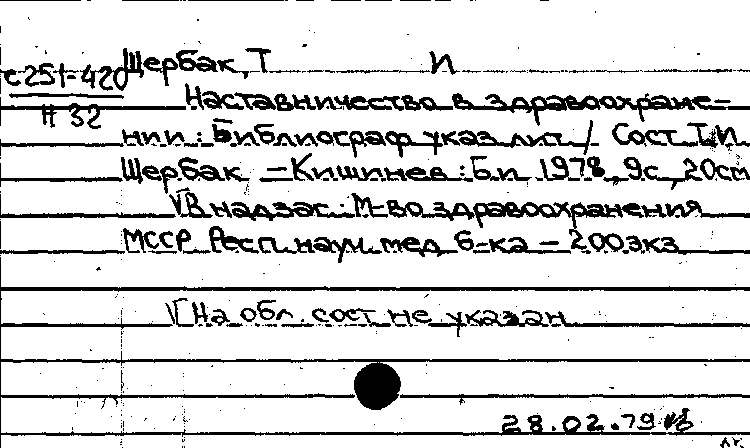 Щербак, Т И
с251-420
Н 32
Наставничество в здравоохране-
нии : Библиограф указ лит / Сост Т. И
Щербак — Кишинев : Б и 1978, 9с, 20см
В надзаг.: М-во здравоохранения
МССР Респ. науч. мед б-ка — 200экз
На обл. сост не указан
28.02.79